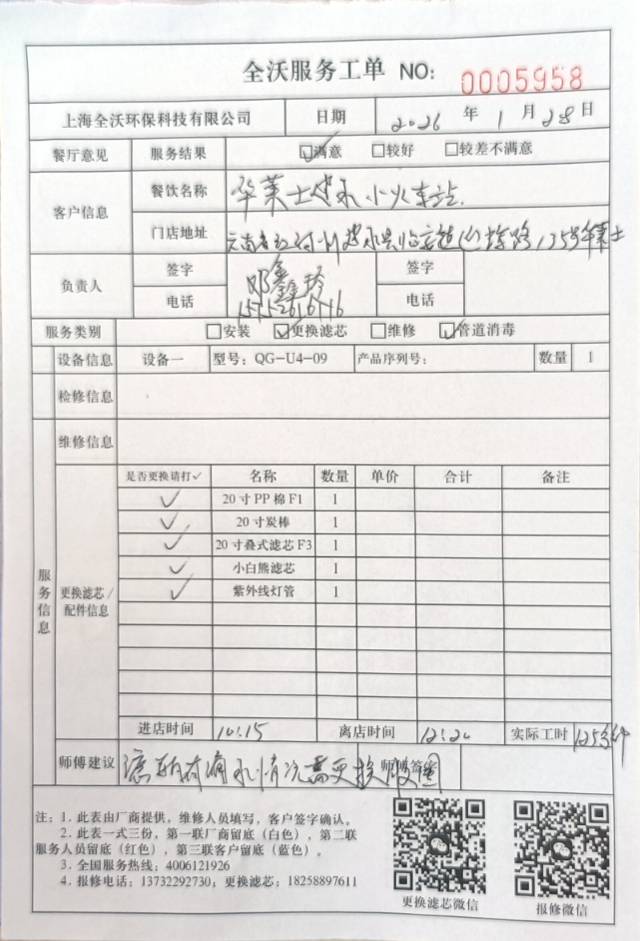 全沃服务工单 NO: 0005958
上海全沃环保科技有限公司 日期 2026 年 1 月 28 日
餐厅意见 服务结果 ☑满意 □较好 □较差不满意
客户信息 餐饮名称 华莱士建水小火车站
门店地址 云南省红河州建水县临安镇 路175号华莱士
负责人 签字 邓 玲 签字
电话 电话
服务类别 □安装 ☑更换滤芯 □维修 ☑管道消毒
设备信息 设备一 型号: QG-U4-09 产品序列号: 数量 1
检修信息
维修信息
服务信息 更换滤芯/配件信息
是否更换请打✓ 名称 数量 单价 合计 备注
✓ 20寸PP棉F1 1
✓ 20寸炭棒 1
✓ 20寸叠式滤芯F3 1
✓ 小白熊滤芯 1
✓ 紫外线灯管 1
进店时间 10:15 离店时间 12:20 实际工时 125分钟
师傅建议 滤瓶有漏水情况需更换胶圈 师傅签字
注: 1. 此表由厂商提供，维修人员填写，客户签字确认。
2. 此表一式三份，第一联厂商留底（白色），第二联
服务人员留底（红色），第三联客户留底（蓝色）。
3. 全国服务热线: 4006121926
4. 报修电话: 13732292730; 更换滤芯: 18258897611
更换滤芯微信 报修微信